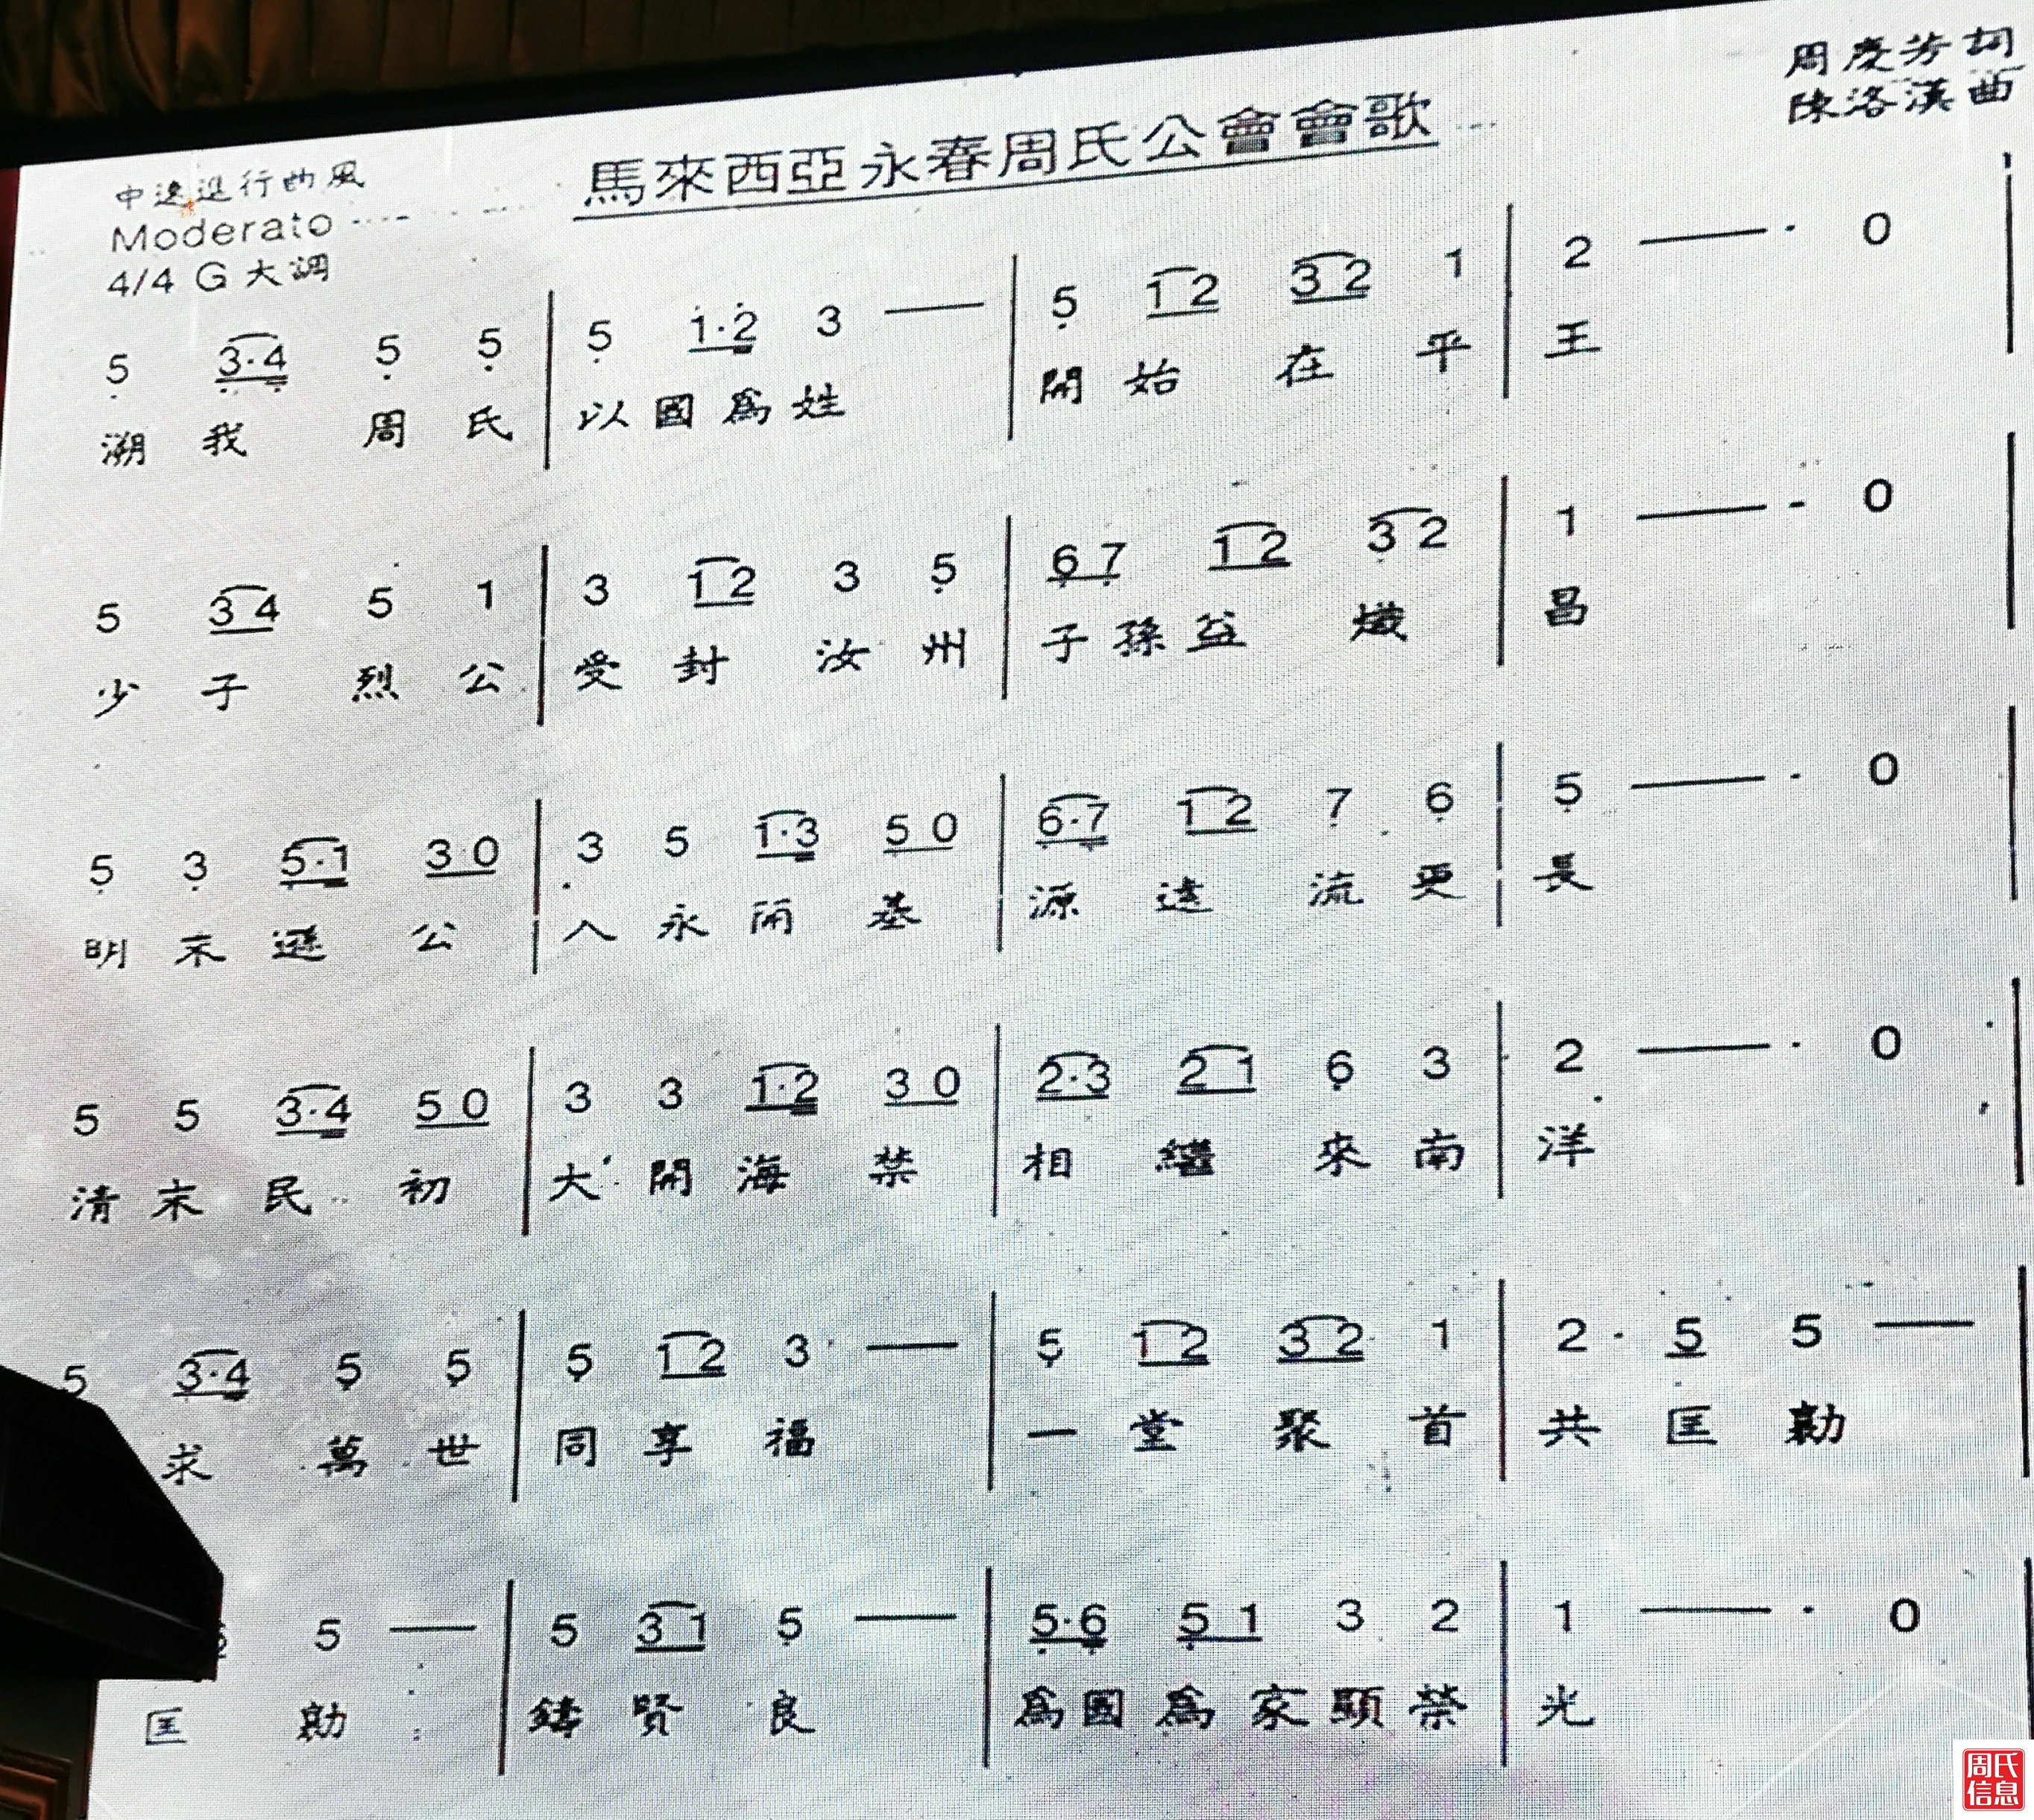 周慶芳詞
陳洛漢曲
馬來西亞永春周氏公會會歌
中速進行曲風
Moderato
4/4 G大調
5 3·4 5 5 | 5 1·2 3 — | 5 1 2 3 2 1 | 2 — · 0 |
溯我周氏 | 以國為姓 | 開始在平 | 王
5 3 4 5 1 | 3 1 2 3 5 | 6 7 1 2 3 2 | 1 — - 0 |
少子烈公 | 受封汝州 | 子孫益熾 | 昌
5 3 5·1 3·0 | 3 5 1·3 5 0 | 6·7 1 2 7 6 | 5 — · 0 |
明末公 | 入永開基 | 源遠流更 | 長
5 5 3·4 5 0 | 3 3 1·2 3 0 | 2·3 2 1 6 3 | 2 — · 0 |
清末民初 | 大開海禁 | 相繼來南 | 洋
5 3·4 5 5 | 5 1 2 3 — | 5 1 2 3 2 1 | 2 · 5 5 — |
求萬世 | 同享福 | 一堂聚首 | 共匡勷
5 — | 5 3 1 5 — | 5·6 5 1 3 2 | 1 — · 0 |
匡勷 | 鑄賢良 | 為國為家顯榮 | 光
周氏
信息